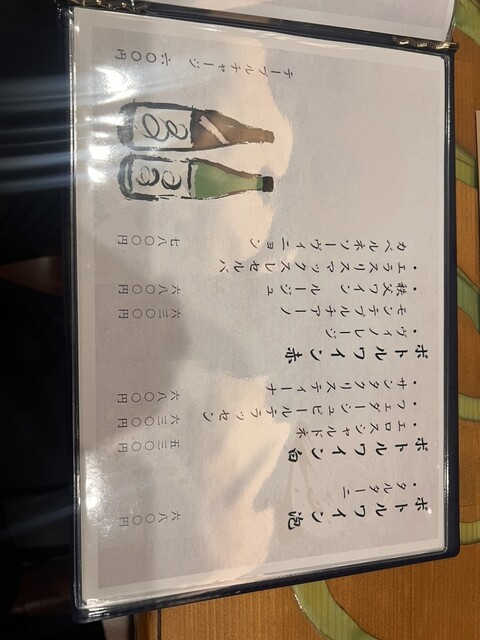 ボトルワイン 泡
・タルターニ 六八〇〇円
ボトルワイン 白
・エロスシャルドネ 五三〇〇円
・フェダーシュピールテラッセン 六三〇〇円
・サンタクリスティーナ 六八〇〇円
ボトルワイン 赤
・ヴィノレージ
モンテプルチアーノ 六三〇〇円
・秩父ワイン ルージュ 六八〇〇円
・エラスリスマックスレセルバ
カベルネソーヴィニヨン 七八〇〇円
テーブルチャージ 六〇〇円